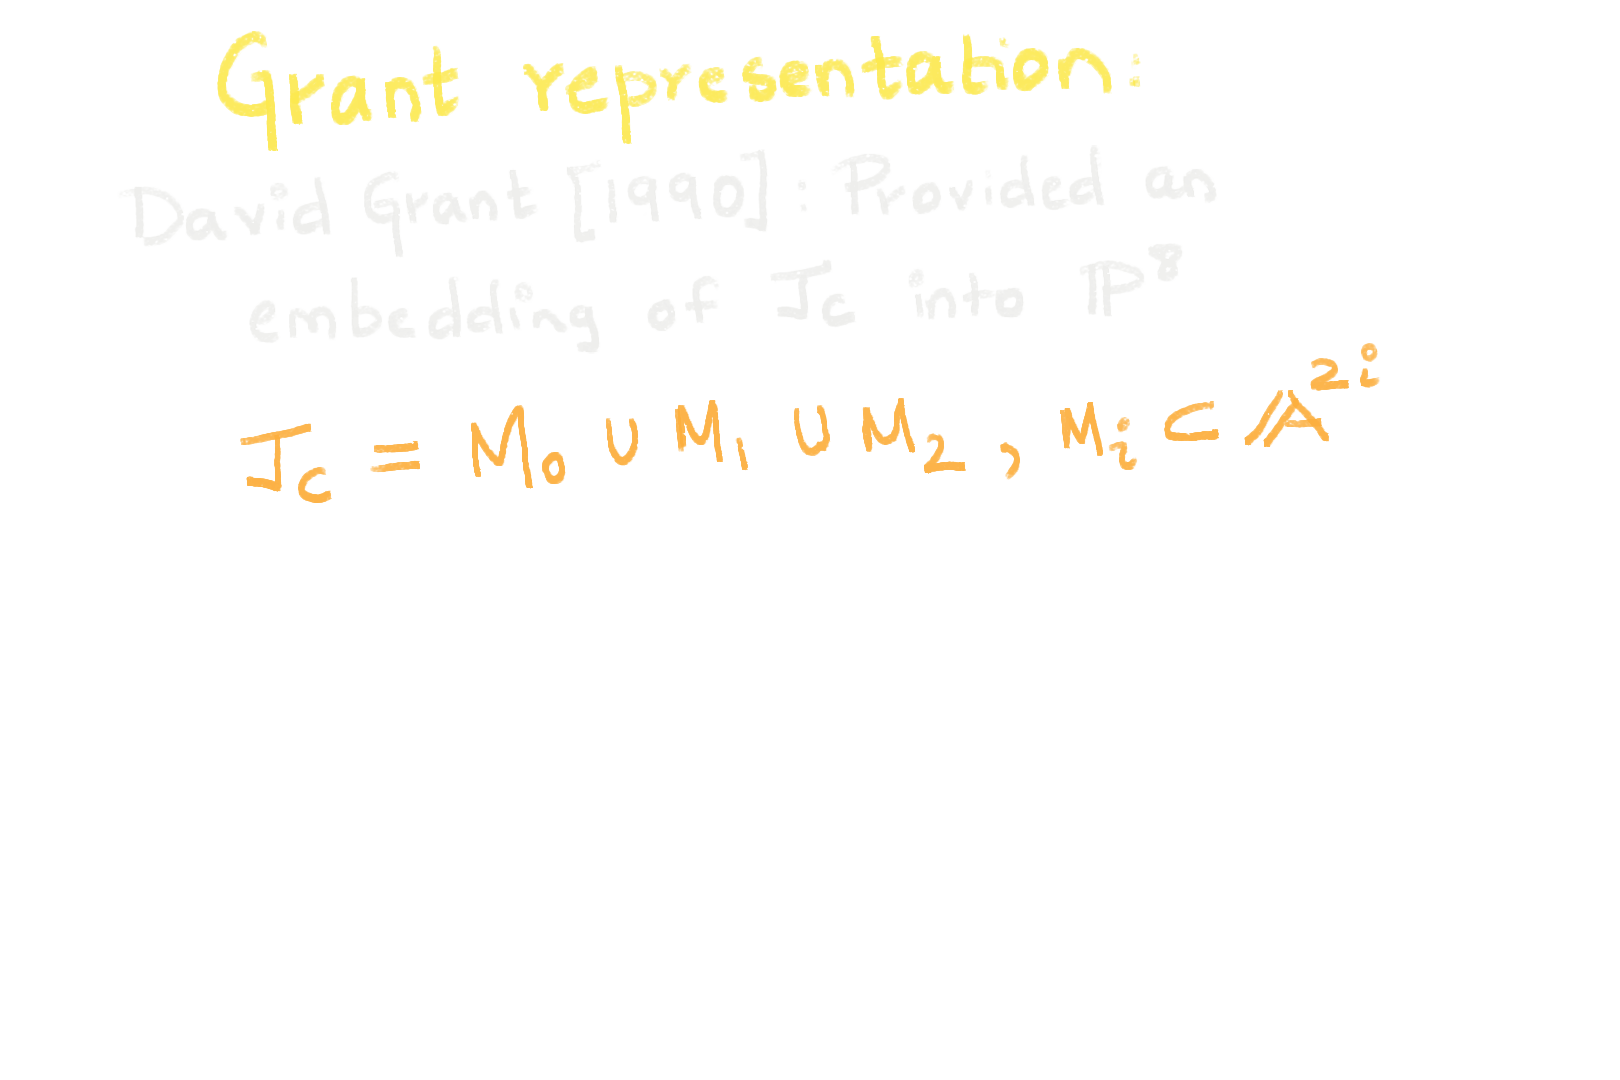 Grant representation:
David Grant [1990]: Provided an
embedding of J_C into ℙ⁸
J_C = M₀ ∪ M₁ ∪ M₂, Mᵢ ⊂ 𝔸²ⁱ